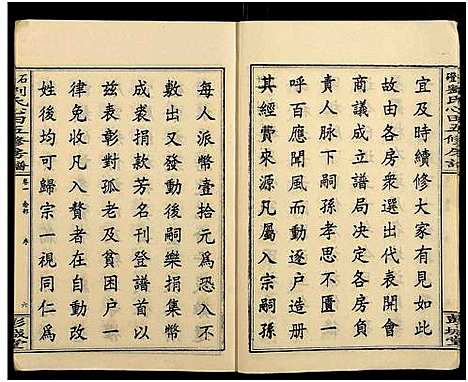 宜及時續修大家有見如此
故由各房衆選出代表開會
商議成立譜局決定各房負
責人脉下嗣孫孝思不匱一
呼百應聞風而動逐户造册
經費來源凡屬入宗子嗣
每人派人民幣壹拾元爲恐入不
數出又發下後嗣樂捐集幣
成裘捐款芳名刊登譜首以
兹表彰對孤老及貧困户一
律免收凡入贅者在自動改
姓後均可歸宗一視同仁爲
劉氏心田五修房譜
卷一
序
六
彭城堂
劉氏心田五修房譜
彭城堂